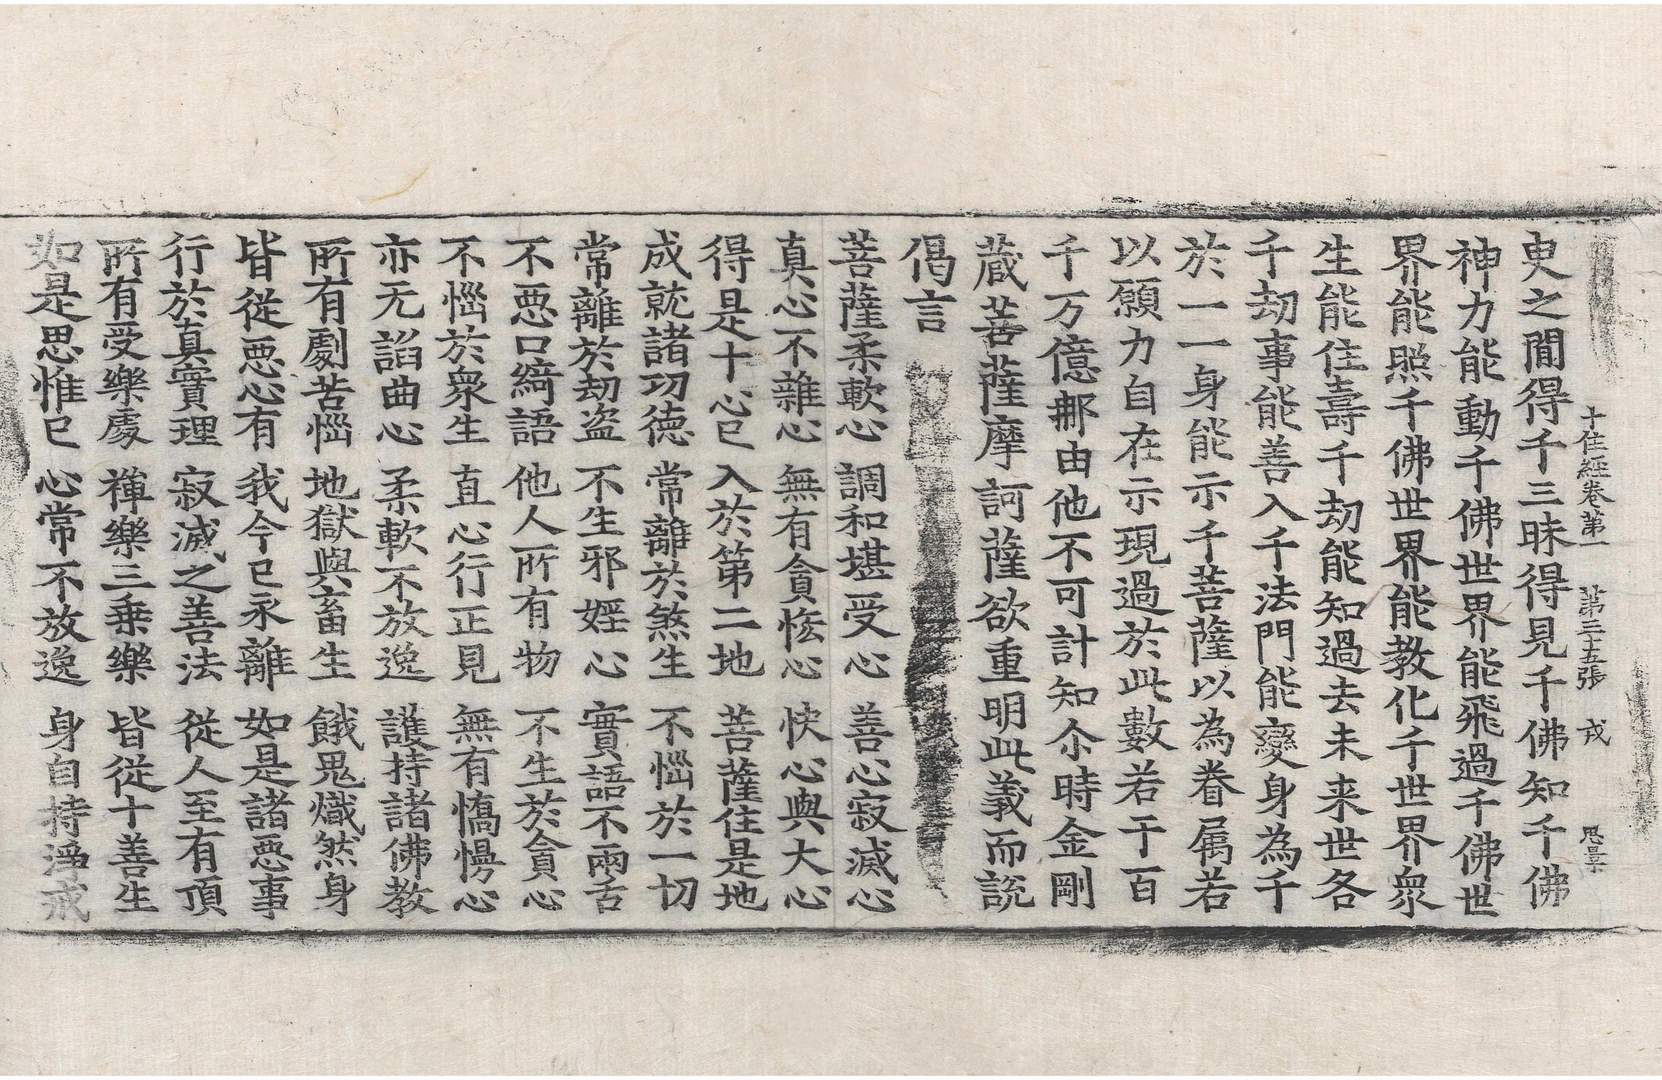 十住経卷第一 第三十五張 戎
臾之閒得千三昧得見千佛知千佛
神力能動千佛世界能飛過千佛世
界能照千佛世界能教化千世界衆
生能住壽千劫能知過去未来世各
千劫事能善入千法門能變身為千
於一一身能示千菩薩以為眷属若
以願力自在示現過於此數若干百
千万億那由他不可計知尒時金剛
蔵菩薩摩訶薩欲重明此義而說
偈言
菩薩柔軟心 調和堪受心 善心寂滅心
真心不雜心 無有貪恡心 快心與大心
得是十心已 入於第二地 菩薩住是地
成就諸功德 常離於煞生 不惱於一切
常離於劫盗 不生邪婬心 實語不兩舌
不惡口綺語 他人所有物 不生於貪心
不惱於衆生 直心行正見 無有憍慢心
亦无諂曲心 柔軟不放逸 護持諸佛教
所有劇苦惱 地獄與畜生 餓鬼熾然身
皆從惡心有 我今已永離 如是諸惡事
行於真實理 寂滅之善法 從人至有頂
所有受樂處 禅樂三乗樂 皆從十善生
如是思惟已 心常不放逸 身自持淨戒